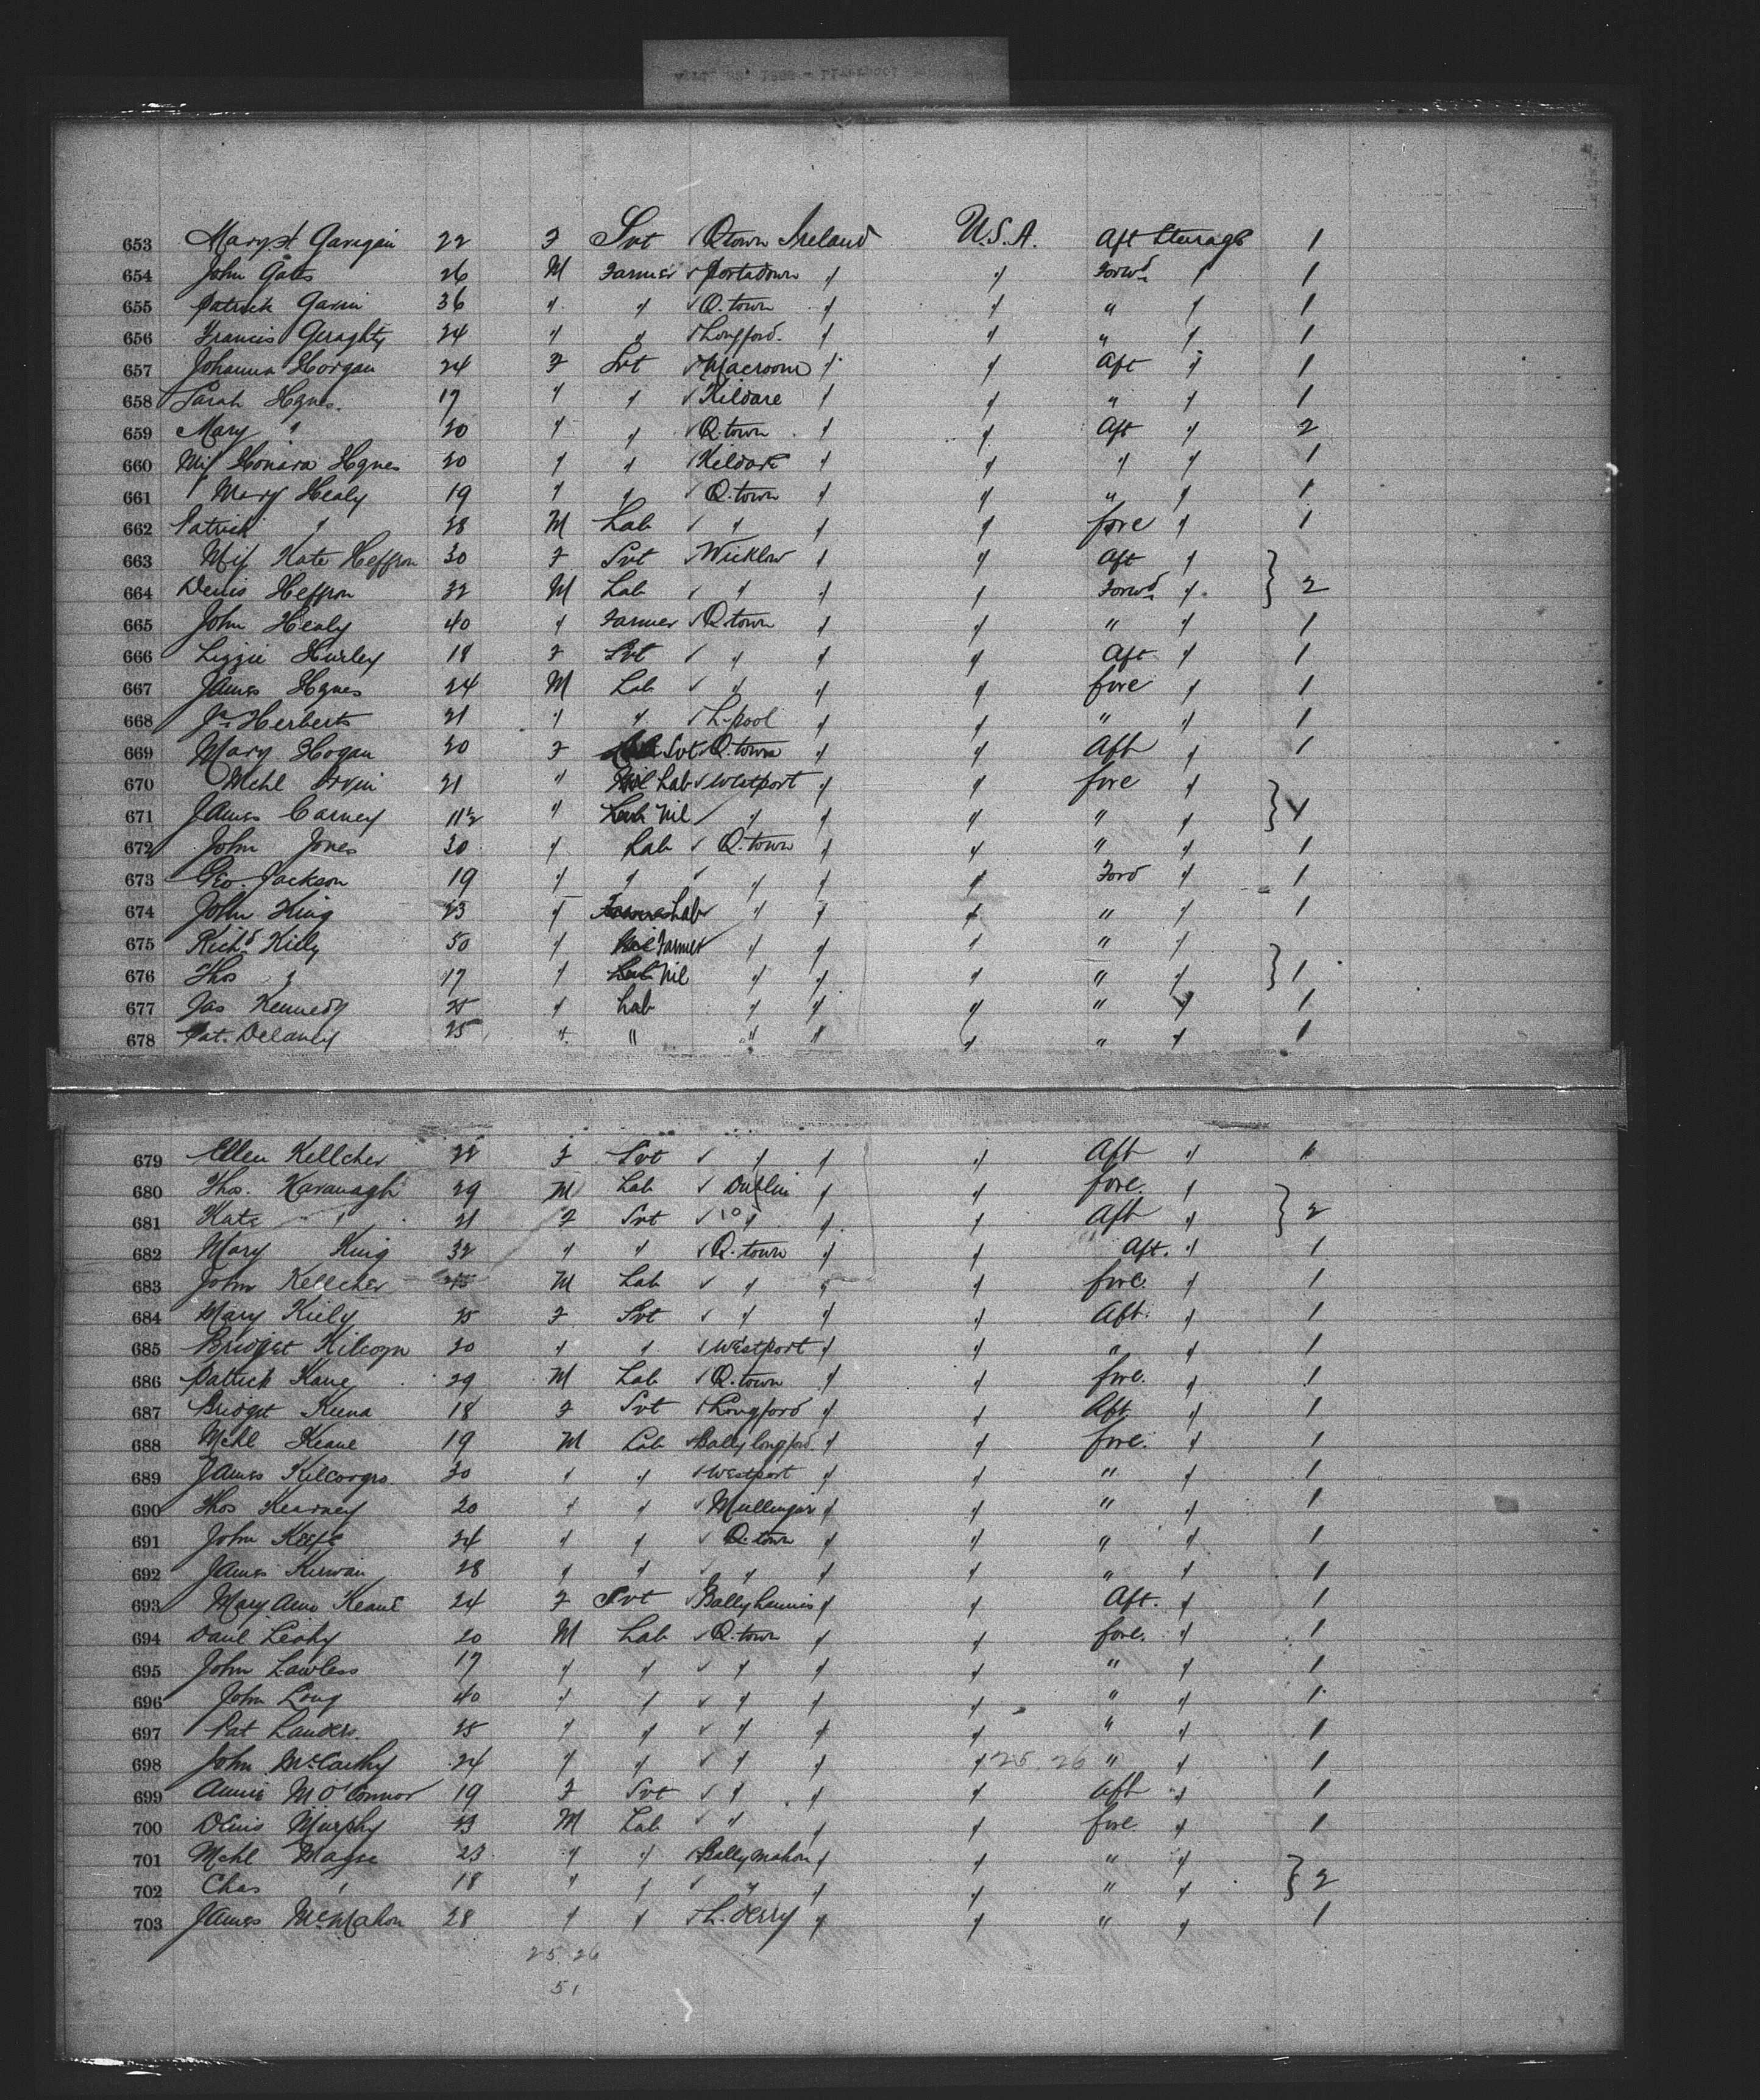 653 Mary A Garigan 22 F Svt Q.town Ireland U.S.A. Aft Sterage 1
654 John Gates 26 M Farmer Portadown " " Forwd " 1
655 Patrick Gavin 36 " " Q.town " " " " 1
656 Francis Geraghty 24 " " Longford " " " " 1
657 Johanna Horgan 24 F Svt Macroom " " Aft " 1
658 Sarah Hynes 17 " " Kildare " " " " 1
659 Mary " 20 " " Q.town " " Aft " 2
660 Miss Honara Hynes 20 " " Kildare " " " " 1
661 " Mary Healy 19 " " Q.town " " " " 1
662 Patrick " 28 M Lab " " " fore " 1
663 Miss Kate Heffron 30 F Svt Wicklow " " Aft "
664 Denis Heffron 32 M Lab " " " Forwd " } 2
665 John Healy 40 " Farmer Q.town " " " " 1
666 Lizzie Hurley 18 F Svt " " " Aft " 1
667 James Hynes 24 M Lab " " " fore " 1
668 Jas Herberts 21 " " L.pool " " " " 1
669 Mary Hogan 20 F Svt Q.town " " Aft " 1
670 Mchl Irvin 21 " Lab Westport " " fore "
671 James Carney 11½ " Nil " " " " " }
672 John Jones 30 " Lab Q.town " " " " 1
673 Geo. Jackson 19 " " " " " Ford " 1
674 John King 23 " Farmer Lab " " " " " 1
675 Richd Kiely 50 " Nil Farmer " " " " "
676 Thos " 17 " Lab Nil " " " " " } 1
677 Jas Kennedy 25 " Lab " " " " " 1
678 Pat. Delaney 25 " " " " " " " 1
679 Ellen Kellcher 22 F Svt " " " Aft " 1
680 Thos. Kavanagh 29 M Lab Dublin " " fore. "
681 Kate " 21 F Svt " " " Aft " } 2
682 Mary King 32 " " Q.town " " Aft. " 1
683 John Kellcher M Lab " " " fore. " 1
684 Mary Kiely 25 F Svt " " " Aft. " 1
685 Bridget Kilcoyn 20 " " Westport " " " " 1
686 Patrick Kane 29 M Lab Q.town " " fore. " 1
687 Bridget Kiena 18 F Svt Longford " " Aft " 1
688 Mchl Keane 19 M Lab Ballylongford " " fore. " 1
689 James Kilcoyn 30 " " Westport " " " " 1
690 Thos Kearney 20 " " Mullingar " " " " 1
691 John Keefe 24 " " Q.town " " " " 1
692 James Kirwan 28 " " " " " " " 1
693 Mary Ann Keane 24 F Svt Ballyhaunis " " Aft. " 1
694 Danl Leahy 20 M Lab Q.town " " fore. " 1
695 John Lawless 17 " " " " " " " 1
696 John Long 40 " " " " " " " 1
697 Pat Landers. 25 " " " " " " " 1
698 John McCarthy 24 " " " " " 25.26 " " 1
699 Annie M O'Connor 19 F Svt " " " Aft " 1
700 Denis Murphy 43 M Lab " " " fore " 1
701 Mchl Magee 23 " " Ballymahon " " " "
702 Chas " 18 " " " " " " " } 2
703 James McMahon 28 " " L.Derry " " " " 1
25.26
51